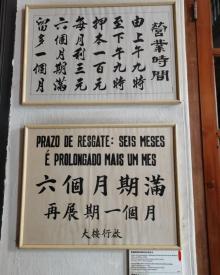 營業時間
由上午九時
至下午九時
押本一百元
每月利三元
六個月期滿
留多一個月
PRAZO DE RESGATE: SEIS MESES
É PROLONGADO MAIS UM MES
六個月期滿
再展期一個月
大樓行啟